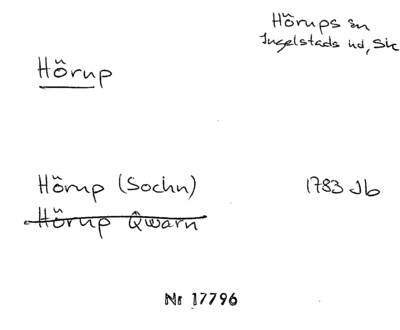 Hörups sn
Ingelstads hd, Sk
Hörup
Hörup (Sochn) 1783 Jb
Hörup Qwarn
Nr 17796